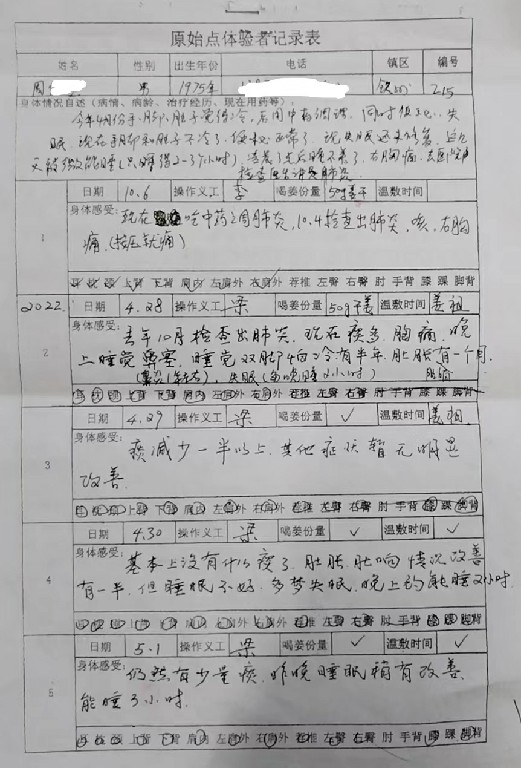 原始点体验者记录表
姓名 性别 出生年份 电话 镇区 编号
周 男 1975年 215
身体情况自述（病情、病龄、治疗经历、现在用药等）：
今年4月份手、脚、肚子觉得冷，后用中药调理，同时
眠，现在手脚和肚子不冷了，便秘正常了，现失眠还未改善，
天 能睡（只睡得2-3个小时），右胸痛，去医院
检查 肺炎
日期 10.6 操作义工 李 喝姜份量 50g 温敷时间
身体感受：
1
现在 吃中药2周肺炎，10.4检查出肺炎，咳，右胸
痛（按压就痛）
上背 下背 肩内 左肩外 右肩外 荐椎 左臀 右臀 肘 手背 膝 踝 脚背
2022. 日期 4.28 操作义工 梁 喝姜份量 50g干姜 温敷时间 姜祖
身体感受：
2
去年10月检查出肺炎，现在痰多，胸痛，晚
上睡觉鼻塞，睡觉双脚 冷有半年，肚胀有一个月，
失眠（每晚睡2小时）
上背 下背 肩内 左肩外 右肩外 荐椎 左臀 右臀 肘 手背 膝 踝 脚背
日期 4.29 操作义工 梁 喝姜份量 ✓ 温敷时间 姜祖
身体感受：
3
痰减少一半以上，其他症状暂无明显
改善
上背 下背 肩内 左肩外 右肩外 荐椎 左臀 右臀 肘 手背 膝 踝 脚背
日期 4.30 操作义工 梁 喝姜份量 ✓ 温敷时间 ✓
身体感受：
4
基本上没有什么痰了，肚胀，肚响情况改善
有一半，但睡眠不好，多梦失眠，晚上约能睡2小时.
上背 下背 肩内 左肩外 右肩外 荐椎 左臀 右臀 肘 手背 膝 踝 脚背
日期 5.1 操作义工 梁 喝姜份量 ✓ 温敷时间 ✓
身体感受：
5
仍然有少量痰，昨晚睡眠稍有改善，
能睡3小时.
上背 下背 肩内 左肩外 右肩外 荐椎 左臀 右臀 肘 手背 膝 踝 脚背